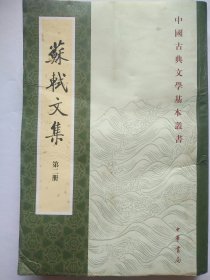 中國古典文學基本叢書
蘇軾文集
第二册
中華書局